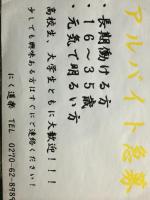 アルバイト急募
・長期働ける方
・16〜35歳
・元気で明るい方
高校生、大学生ともに大歓迎!!!
少しでも興味ある方はすぐにご連絡ください!
にく道楽 TEL 0270-62-8989